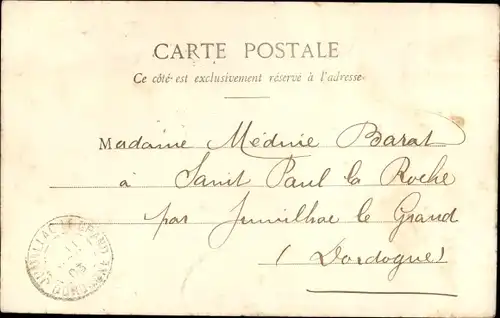 CARTE POSTALE
Ce côté est exclusivement réservé à l'adresse
Madame Médinie Barat
à Saint Paul la Roche
par Jumilhac le Grand
(Dordogne)
JUMILLAC-LE-GRAND
DORDOGNE
03